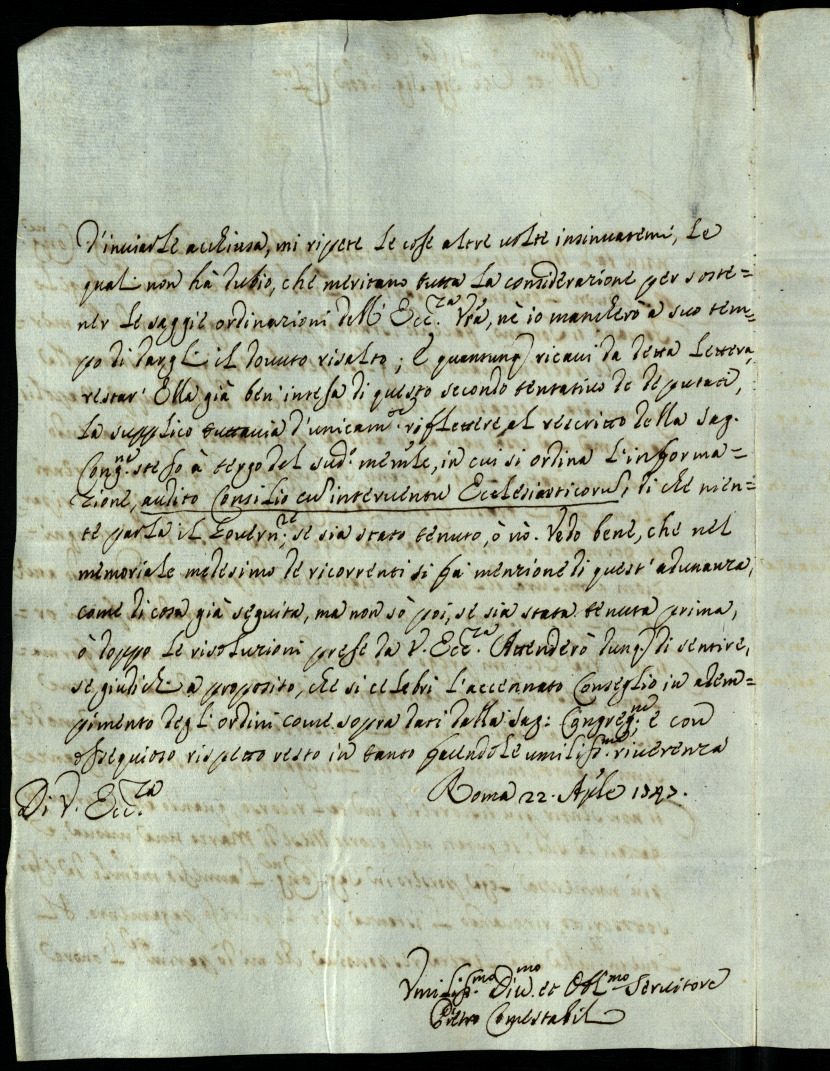 D'inviarle acchiusa, mi ripete le cose altre volte insinuatemi, le
quali non hà dubio, che meritano tutta la considerazione per soste=
ner le saggie ordinazioni dell' Ecc.za Vrã, nè io mancherò a suo tem=
po di dargli il dovuto risalto; e quantunq ricavi da detta lettera,
restar' Ella già ben' intesa di questo secondo tentativo de deputati,
la supplico tuttavia d'unicam.te riflettere, al rescritto della sag.
Cong.ne steso à tergo del sud.o memle, in cui si ordina l'informa=
zione, audito Consilio cu' interventu Ecclesiasticoru', di che nien=
te parla il Govern.re se sia stato tenuto, ò nò. Vedo bene, che nel
memoriale medesimo de ricorrenti si fa' menzione di quest' adunanza,
come di cosa già seguita, ma non sò poi, se sia stata tenuta prima,
ò doppo le risoluzioni prese da V. Ecc.za Attenderò dunq di sentire,
se giudichi a proposito, che si celebri l'accennato Conseglio in adem=
pimento degl' ordini come sopra dati dalla sag: Congreg.ne e con
ossequioso rispetto resto in tanto facendole umiliss.ma riverenza
Di V. Ecc.za Roma 22. Aple 1747.
Umiliss.mo Div.mo et Obl.mo Servitore
Pietro Conestabili